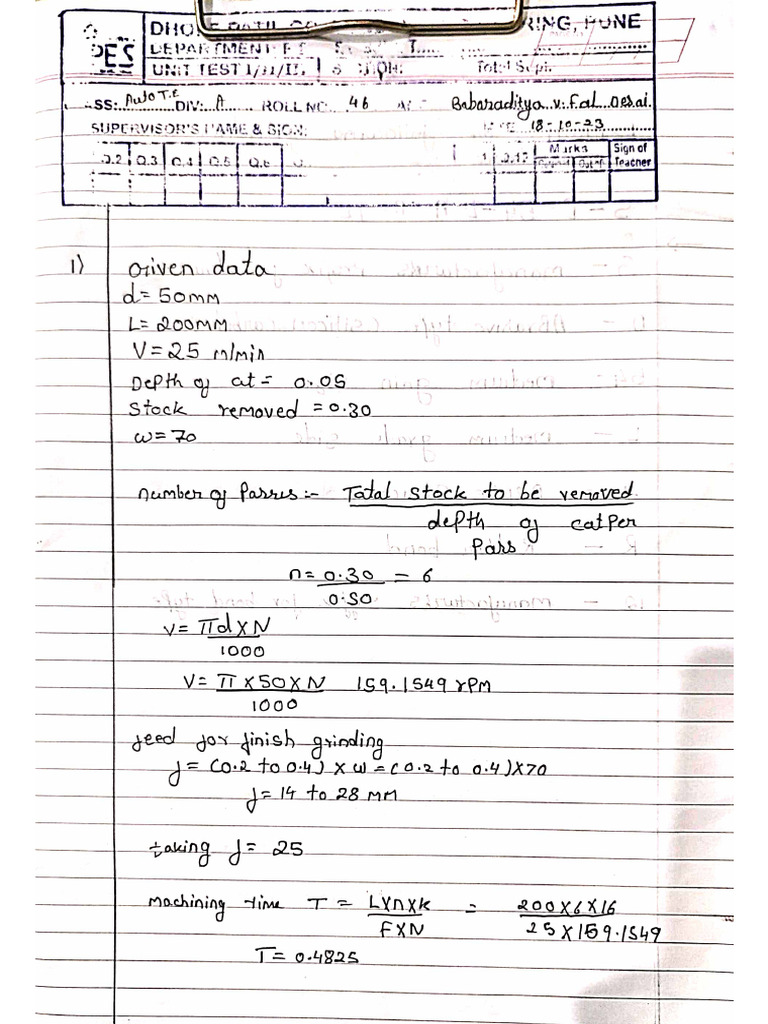 RING, PUNE
DES
DEPARTMENT
UNIT TEST I/II/II.
SS: Auto T.E DIV: A ROLL NO. 46 Babaraditya v. Fal Desai.
SUPERVISOR'S NAME & SIGN: 18-10-23
Q.2 Q.3 Q.4 Q.5 Q.6 Q.12 Marks Sign of
Out of Teacher
1) Given data
d= 50mm
L= 200mm
V= 25 m/min
Depth of cut = 0.05
Stock removed = 0.30
w= 70
number of Passes :- Total stock to be removed
depth of cut Per
Pass
n= 0.30 = 6
0.50
v= πd×N
1000
v= π ×50×N 159.1549 rPM
1000
feed for finish grinding
f= (0.2 to 0.4) × w = (0.2 to 0.4)×70
f= 14 to 28 mm
taking f= 25
Machining time T = L×n×k = 200×6×16
F×N 25×159.1549
T= 0.4825